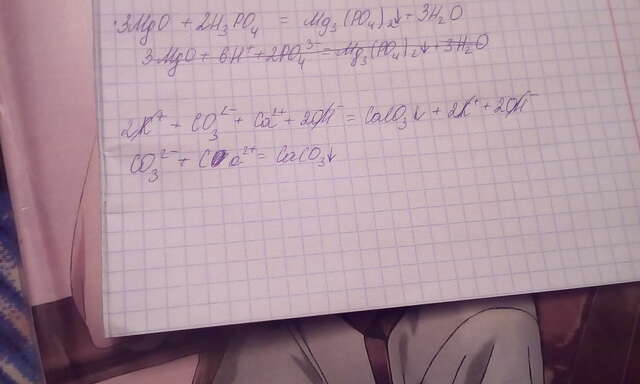 3MgO + 2H₃PO₄ = Mg₃(PO₄)₂↓ + 3H₂O
3MgO + 6H⁺ + 2PO₄³⁻ = Mg₃(PO₄)₂↓ + 3H₂O
2K⁺ + CO₃²⁻ + Ca²⁺ + 2OH⁻ = CaCO₃↓ + 2K⁺ + 2OH⁻
CO₃²⁻ + Ca²⁺ = CaCO₃↓